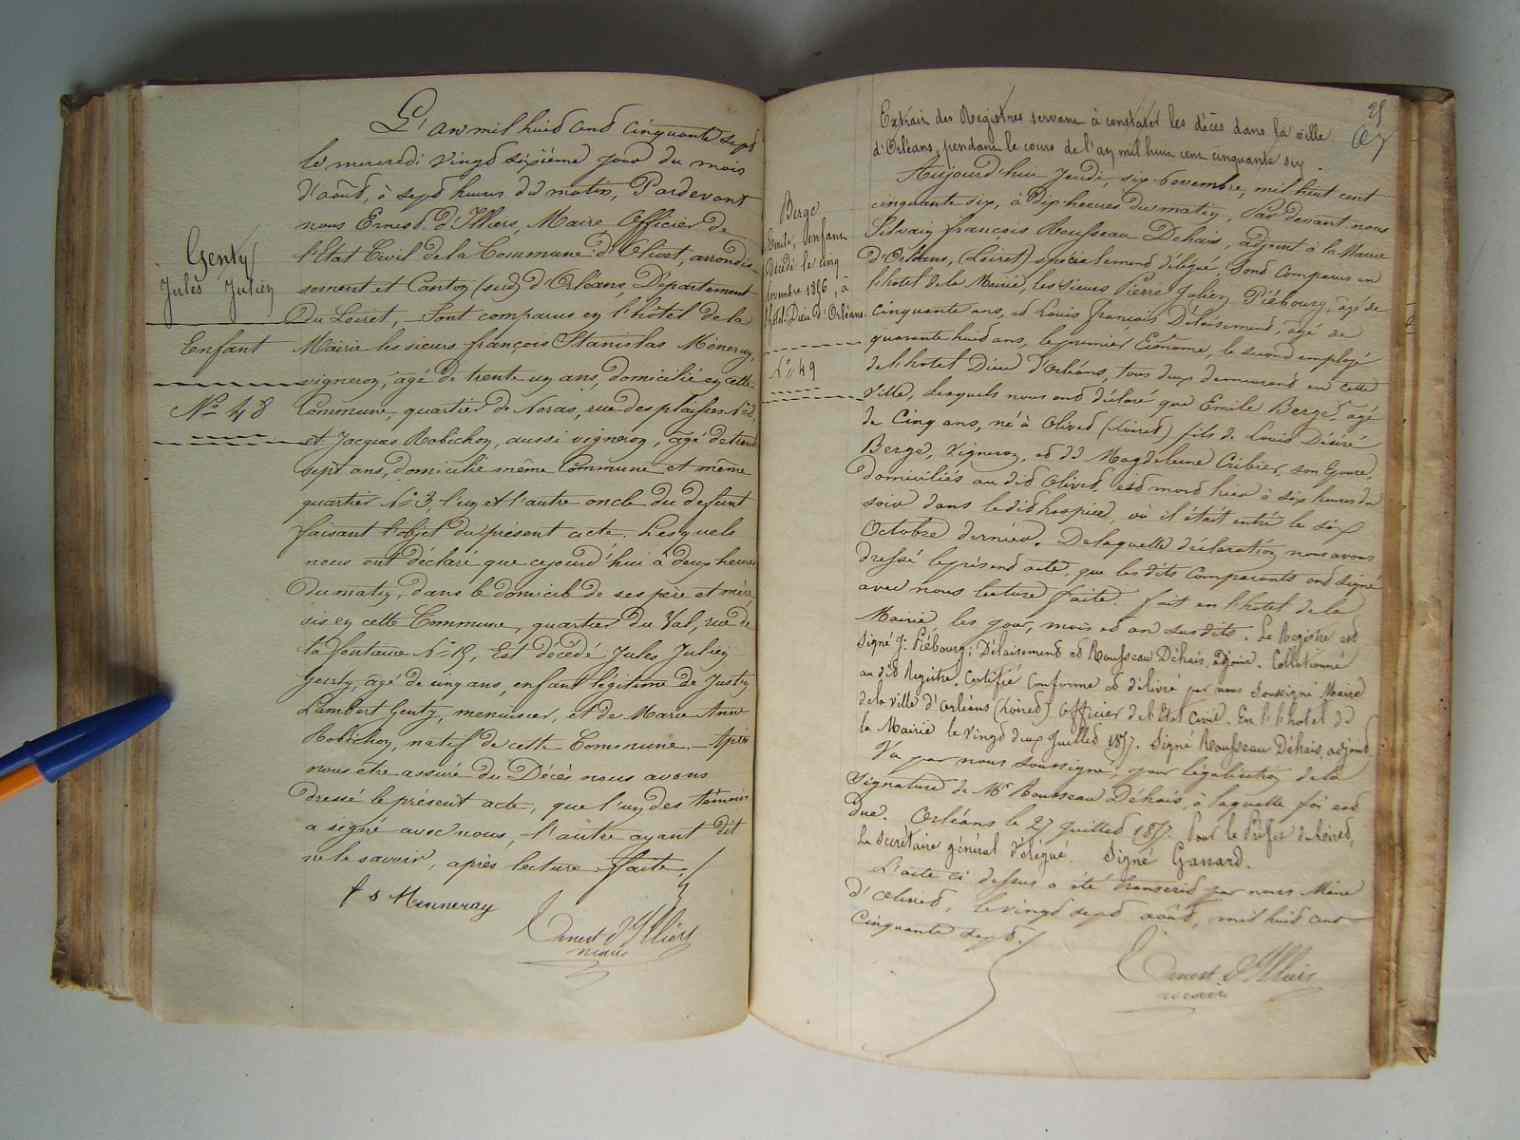 L'an mil huit cent cinquante sept
le mercredi vingt sixième jour du mois
d'août, à sept heures du matin, Pardevant
nous Ernest d'Illiers, Maire Officier de
l'Etat Civil de la Commune d'Olivet, arrondis-
sement et Canton (sud) d'Orléans, Département
du Loiret, sont comparus en l'hôtel de la
Mairie les sieurs françois Stanislas Méneray,
vigneron, âgé de trente un ans, domicilié en cette
Commune, quartier de Noras, rue des
et Jacques Robichon, aussi vigneron, âgé de trente
sept ans, domicilié même Commune et même
quartier No 3, l'un et l'autre oncle du defunt
faisant l'objet du présent acte. Lesquels
nous ont déclaré que cejourd'hui à deux heures
du matin, dans le domicile de ses père et mère,
sis en cette Commune, quartier du Val, rue de
la fontaine No 19, Est décédé Jules Julien
Genty, âgé de cinq ans, enfant légitime de Justin
Lambert Genty, menuisier, et de Marie Anne
Robichon, natif de cette Commune. Après
nous être assuré du Décès nous avons
dressé le présent acte, que l'un des témoins
a signé avec nous, l'autre ayant dit
ne le savoir, après lecture faite.
f s Menneray
Ernest d'Illiers
maire
Genty
Jules Julien
Enfant
No 48
25
Extrait des Registres servant à constater les décès dans la ville
d'Orléans, pendant le cours de l'an mil huit cent cinquante six.
Aujourd'hui Jeudi, six Novembre, mil huit cent
cinquante six, à Dix heures du matin, Pardevant nous
Silvain françois Rousseau Dehais, adjoint à la Mairie
d'Orléans, (Loiret) spécialement délégué, sont comparus en
l'hotel de la Mairie, les sieurs Pierre Julien Piébourg, âgé de
cinquante ans, et Louis françois Délaisement, âgé de
quarante huit ans, le premier Econome, le second employé
de l'hotel Dieu d'Orléans, tous deux demeurant en cette
Ville, Lesquels nous ont déclaré que Emile Bergé, âgé
de Cinq ans, né à Olivet (Loiret) fils de Louis Désiré
Bergé, Vigneron, et de Magdeleine Cribier, son Epouse,
domiciliés au dit Olivet, est mort hier à six heures du
soir dans le dit hospice, où il était entré le six
Octobre dernier. De laquelle déclaration nous avons
dressé le présent acte, que les dits Comparants ont signé
avec nous lecture faite. fait en l'hotel de la
Mairie les jour, mois et an susdits. Le Registre est
signé J. Piébourg, Délaisement et Rousseau Déhais, adjoint. Collationné
au dit Registre. Certifié Conforme et délivré par nous Soussigné Maire
de la ville d'Orléans (Loiret) Officier de l'Etat Civil. En l'hotel de
la Mairie le Vingt deux Juillet 1857. Signé Rousseau Déhais, adjoint
Vu par nous soussigné, pour légalisation de la
signature de Mr Rousseau Déhais, à laquelle foi est
due. Orléans le 27 Juillet 1857. Pour le Préfet du Loiret,
Le Secrétaire général délégué. Signé Ganard.
L'acte ci dessus a été transcrit par nous Maire
d'Olivet, le vingt sept août, mil huit cent
cinquante sept.
Ernest d'Illiers
maire
Bergé
Emile, Enfant
Décédé le cinq
Novembre 1856, à
l'hotel-Dieu d'Orléans
No 49